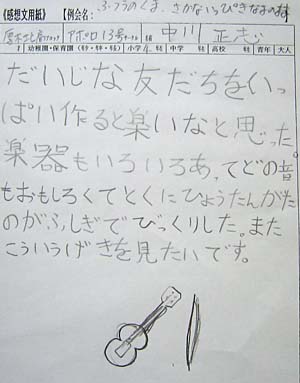 《感想文用紙》【例会名】 ふうのくま、さかないっぴきなまのまま
厚木北 アポロ13号サークル 名 中川 正
1 幼稚園・保育園 小学4年 中学 年 高校 年 青年 大人
だいじな友だちをいっ
ぱい作ると楽いなと思った。
楽器もいろいろあ、てどの音
もおもしろくてとくにひょうたんがた
のがふしぎでびっくりした。また
こういうげきを見たいです。